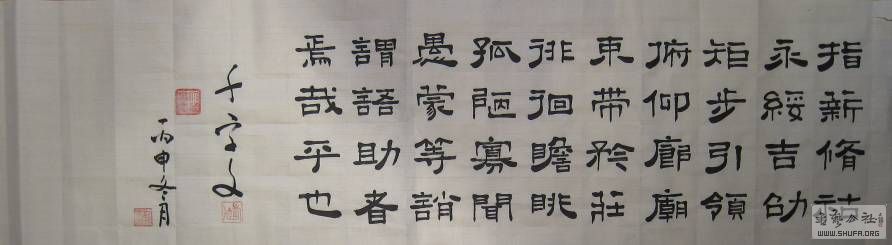 指薪脩祜
永綏吉劭
矩步引領
俯仰廊廟
束帶矜莊
徘徊瞻眺
孤陋寡聞
愚蒙等誚
謂語助者
焉哉乎也
千字文
丙申冬月
WWW.SHUFA.ORG